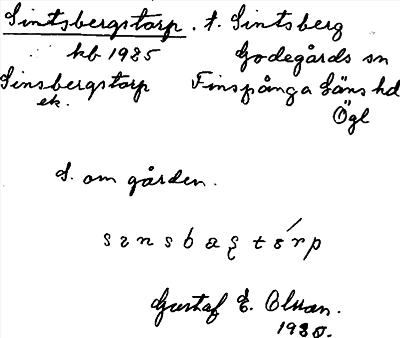 Sintsbergstorp. t. Sintsberg
kb 1925 Godegårds sn
Sinsbergstorp Finspånga läns hd
ek. Ögl
S. om gården.
Gustaf E. Olsson.
1930.